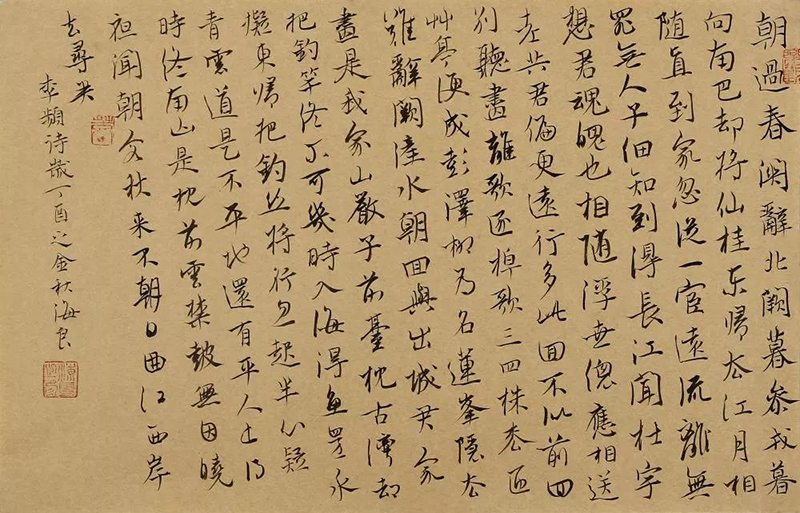 朝過春闗辭北闕暮參戎暮
向南巴却將仙桂東歸去江月相
隨直到家忽從一宦遠流離無
罪無人子細知到得長江聞杜宇
想君魂魄也相隨浮世總應相送
老共君偏更遠行多此回不似前回
別聽盡離歌逐棹歌三四株松匝
艸亭便成彭澤柳為名蓮峯隱去
難辭闕滻水朝回與出城君家
盡是我家山嚴子前臺枕古灣却
把釣竿終不可幾時入海得魚還永
擬東歸把釣絲將行忽起半心疑
青雲道是不平地還有平人上得
時終南山是枕前雲禁鼓無因曉
夜聞朝客秋來不朝日曲江西岸
去尋君
李頻詩歲丁酉之金秋海書